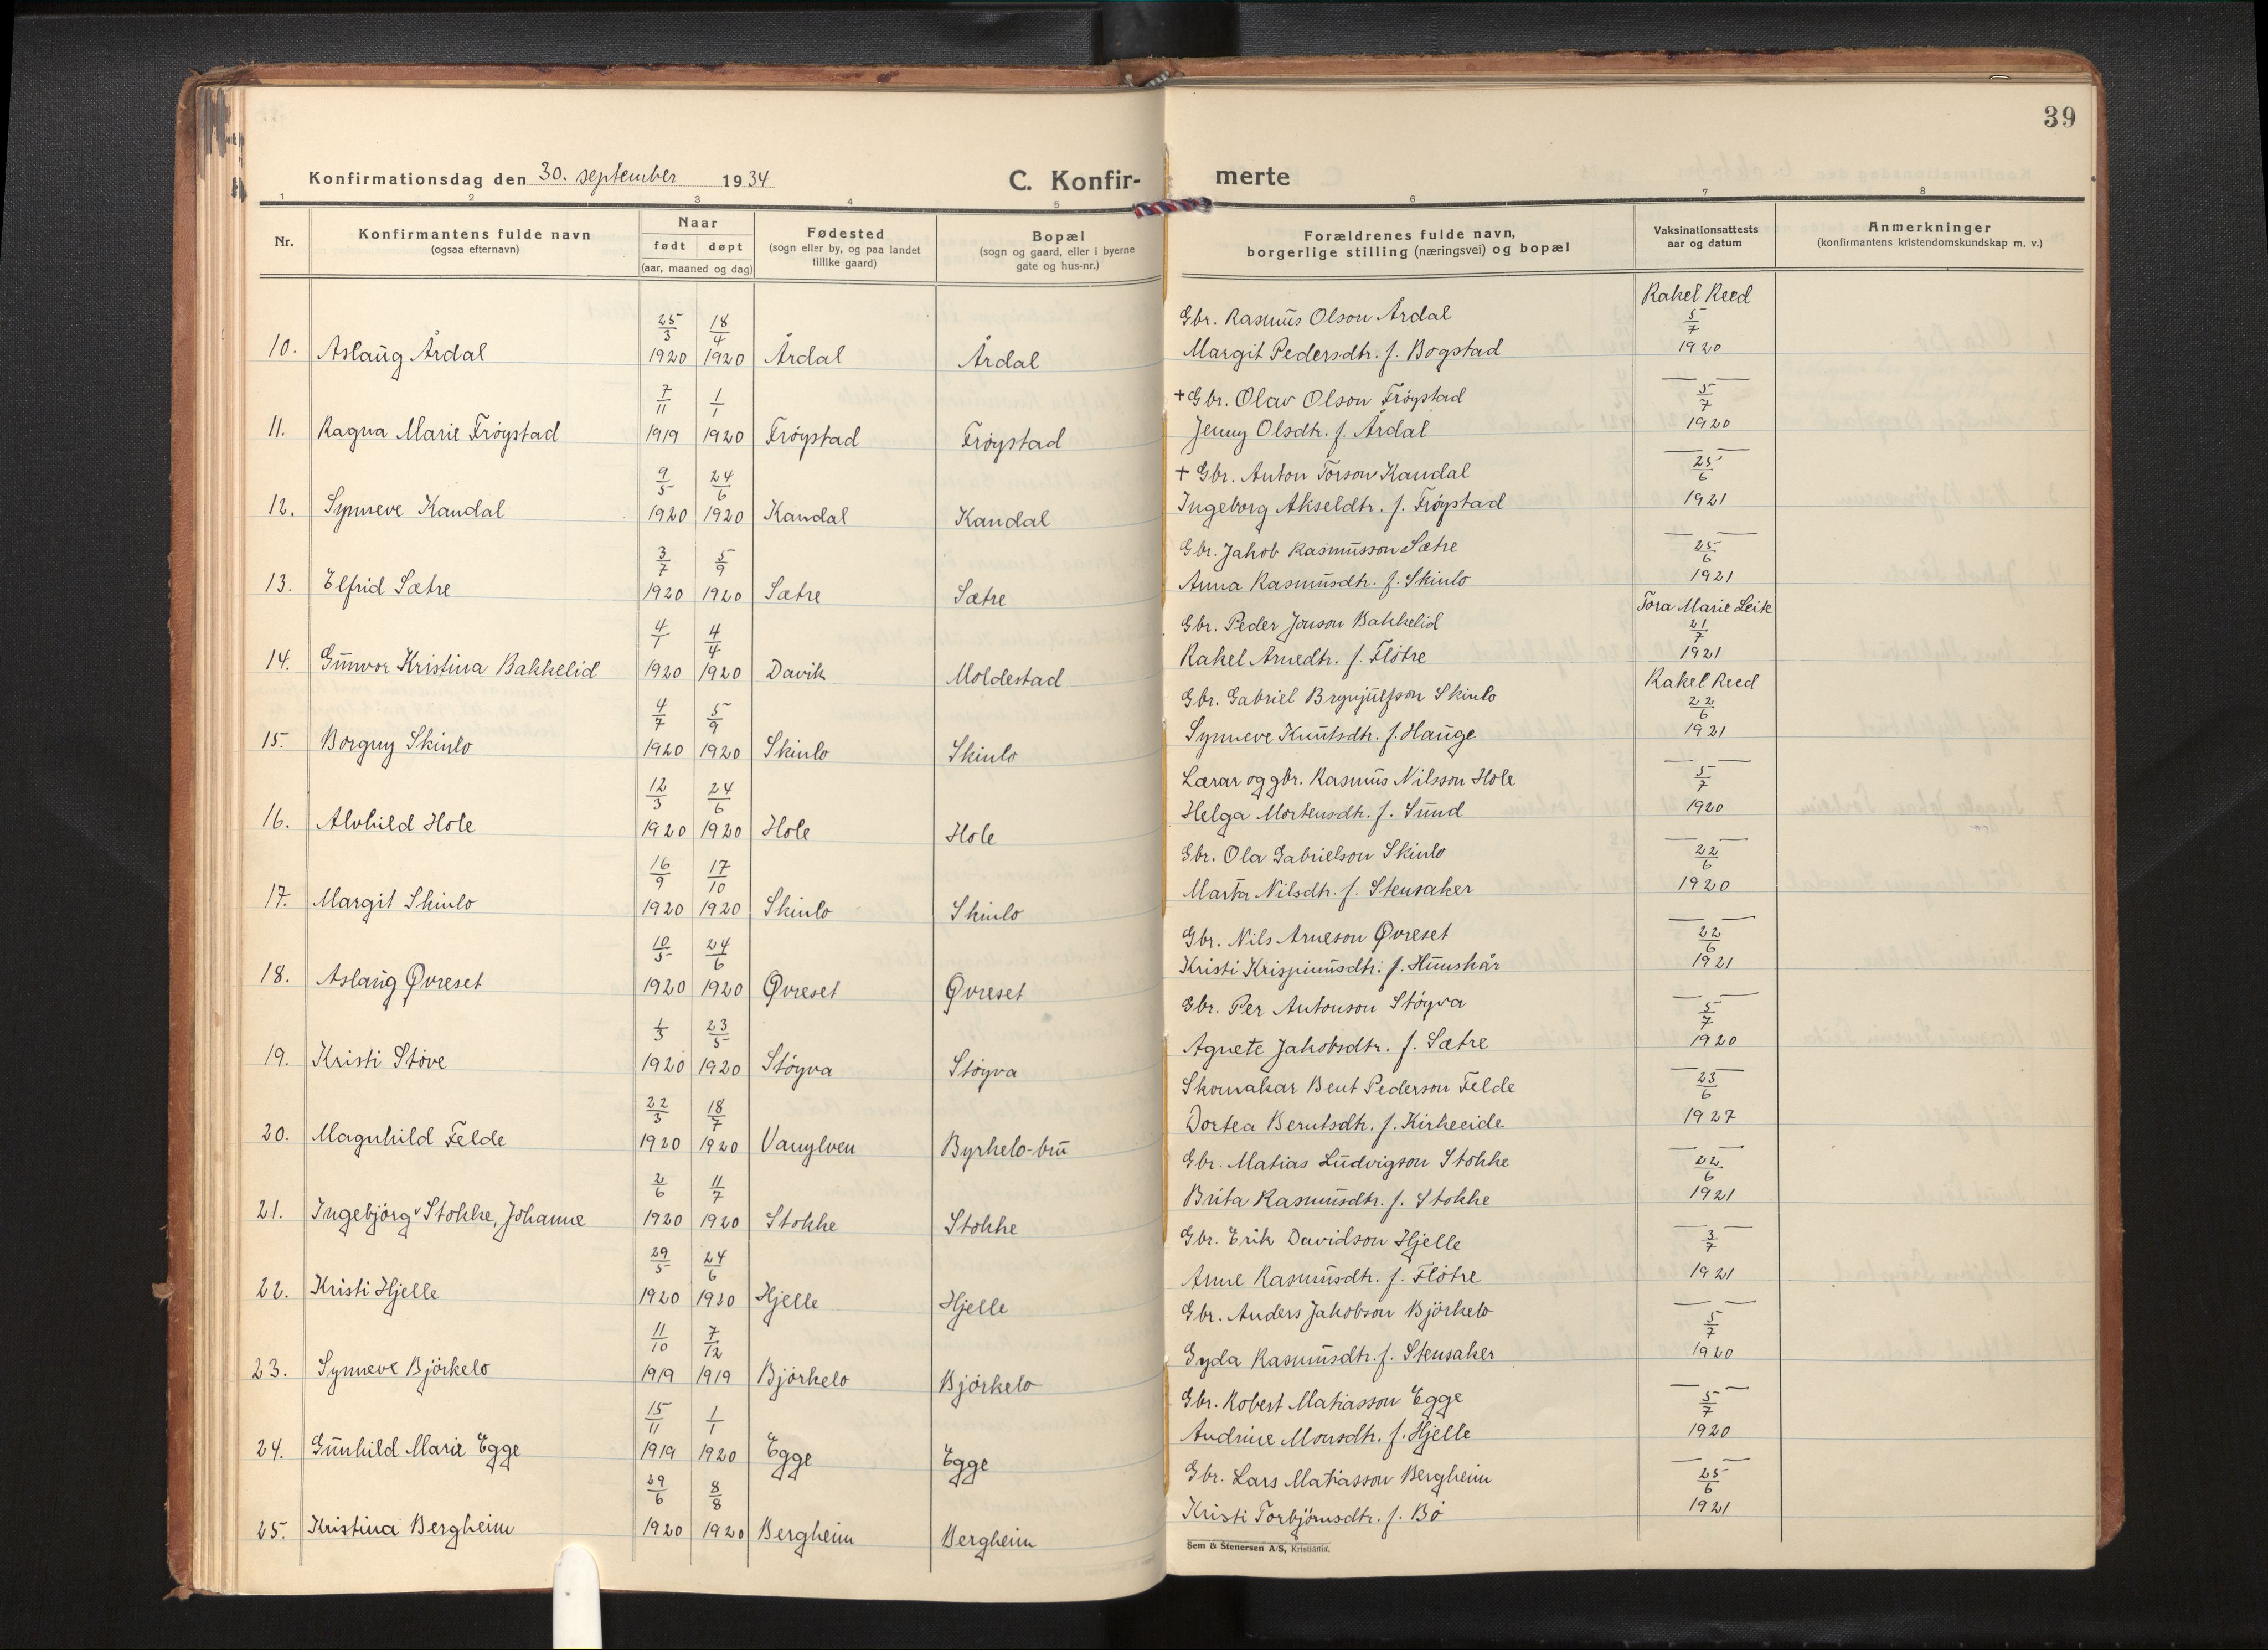 39
Konfirmationsdag den 30. september 1934 C. Konfir- merte
1 2 3 4 5 6 7 8
Nr. Konfirmantens fulde navn (ogsaa efternavn) Naar født døpt (aar, maaned og dag) Fødested (sogn eller by, og paa landet tillike gaard) Bopæl (sogn og gaard, eller i byerne gate og hus-nr.) Forældrenes fulde navn, borgerlige stilling (næringsvei) og bopæl Vaksinationsattests aar og datum Anmerkninger (konfirmantens kristendomskundskap m. v.)
25/3 18/4 Gbr. Rasmus Olson Årdal Rakel Reed 5/7
10. Aslaug Årdal 1920 1920 Årdal Årdal Margit Pedersdtr. f. Bogstad 1920
7/11 1/1 + Gbr. Olav Olson Fröystad — 5/7 —
11. Ragna Marie Fröystad 1919 1920 Fröystad Fröystad Jenny Olsdtr. f. Årdal 1920
9/5 24/6 + Gbr. Anton Torson Kandal — 25/6 —
12. Synneve Kandal 1920 1920 Kandal Kandal Ingeborg Akseldtr. f. Fröystad 1921
3/7 5/9 Gbr. Jakob Rasmusson Sætre — 25/6 —
13. Elfrid Sætre 1920 1920 Sætre Sætre Anna Rasmusdtr. f. Skinlo 1921
4/1 4/4 Gbr. Peder Jonson Bakkelid Tora Marie Leik 21/7
14. Gunvor Kristina Bakkelid 1920 1920 Davik Moldestad Rakel Arnedtr. f. Flötre 1921
4/7 5/9 Gbr. Gabriel Brynjulfson Skinlo Rakel Reed 22/6
15. Borgny Skinlo 1920 1920 Skinlo Skinlo Synneve Knutsdtr. f. Hauge 1921
12/3 24/6 Lærar og gbr. Rasmus Nilsson Hole — 5/7 —
16. Alvhild Hole 1920 1920 Hole Hole Helga Mortensdtr. f. Sund 1920
16/9 17/10 Gbr. Ola Gabrielson Skinlo — 22/6 —
17. Margit Skinlo 1920 1920 Skinlo Skinlo Marta Nilsdtr. f. Stensaker 1920
10/5 24/6 Gbr. Nils Arneson Øvreset — 22/6 —
18. Aslaug Øvreset 1920 1920 Øvreset Øvreset Kristi Krispinusdtr. f. Hunskår 1921
1/3 23/5 Gbr. Per Antonson Stöyva — 5/7 —
19. Kristi Stöve 1920 1920 Stöyva Stöyva Agnete Jakobsdtr. f. Sætre 1920
22/3 18/7 Skomakar Bent Pederson Felde — 23/6 —
20. Magnhild Felde 1920 1920 Vanylven Byrkelo-bru Dortea Berntsdtr. f. Kirkeeide 1927
2/6 11/7 Gbr. Matias Ludvigson Stokke — 22/6 —
21. Ingebjörg Stokke, Johanne 1920 1920 Stokke Stokke Brita Rasmusdtr. f. Stokke 1921
29/5 24/6 Gbr. Erik Davidson Hjelle — 3/7 —
22. Kristi Hjelle 1920 1920 Hjelle Hjelle Anne Rasmusdtr. f. Flötre 1921
11/10 7/12 Gbr. Anders Jakobson Björkelo — 5/7 —
23. Synneve Björkelo 1919 1919 Björkelo Björkelo Gyda Rasmusdtr. f. Stensaker 1920
15/11 1/1 Gbr. Robert Matiasson Egge — 5/7 —
24. Gunhild Marie Egge 1919 1920 Egge Egge Andrine Monsdtr. f. Hjelle 1920
29/6 8/8 Gbr. Lars Matiasson Bergheim — 25/6 —
25. Kristina Bergheim 1920 1920 Bergheim Bergheim Kristi Torbjörnsdtr. f. Bö 1921
Sem & Stenersen A/S, Kristiania.